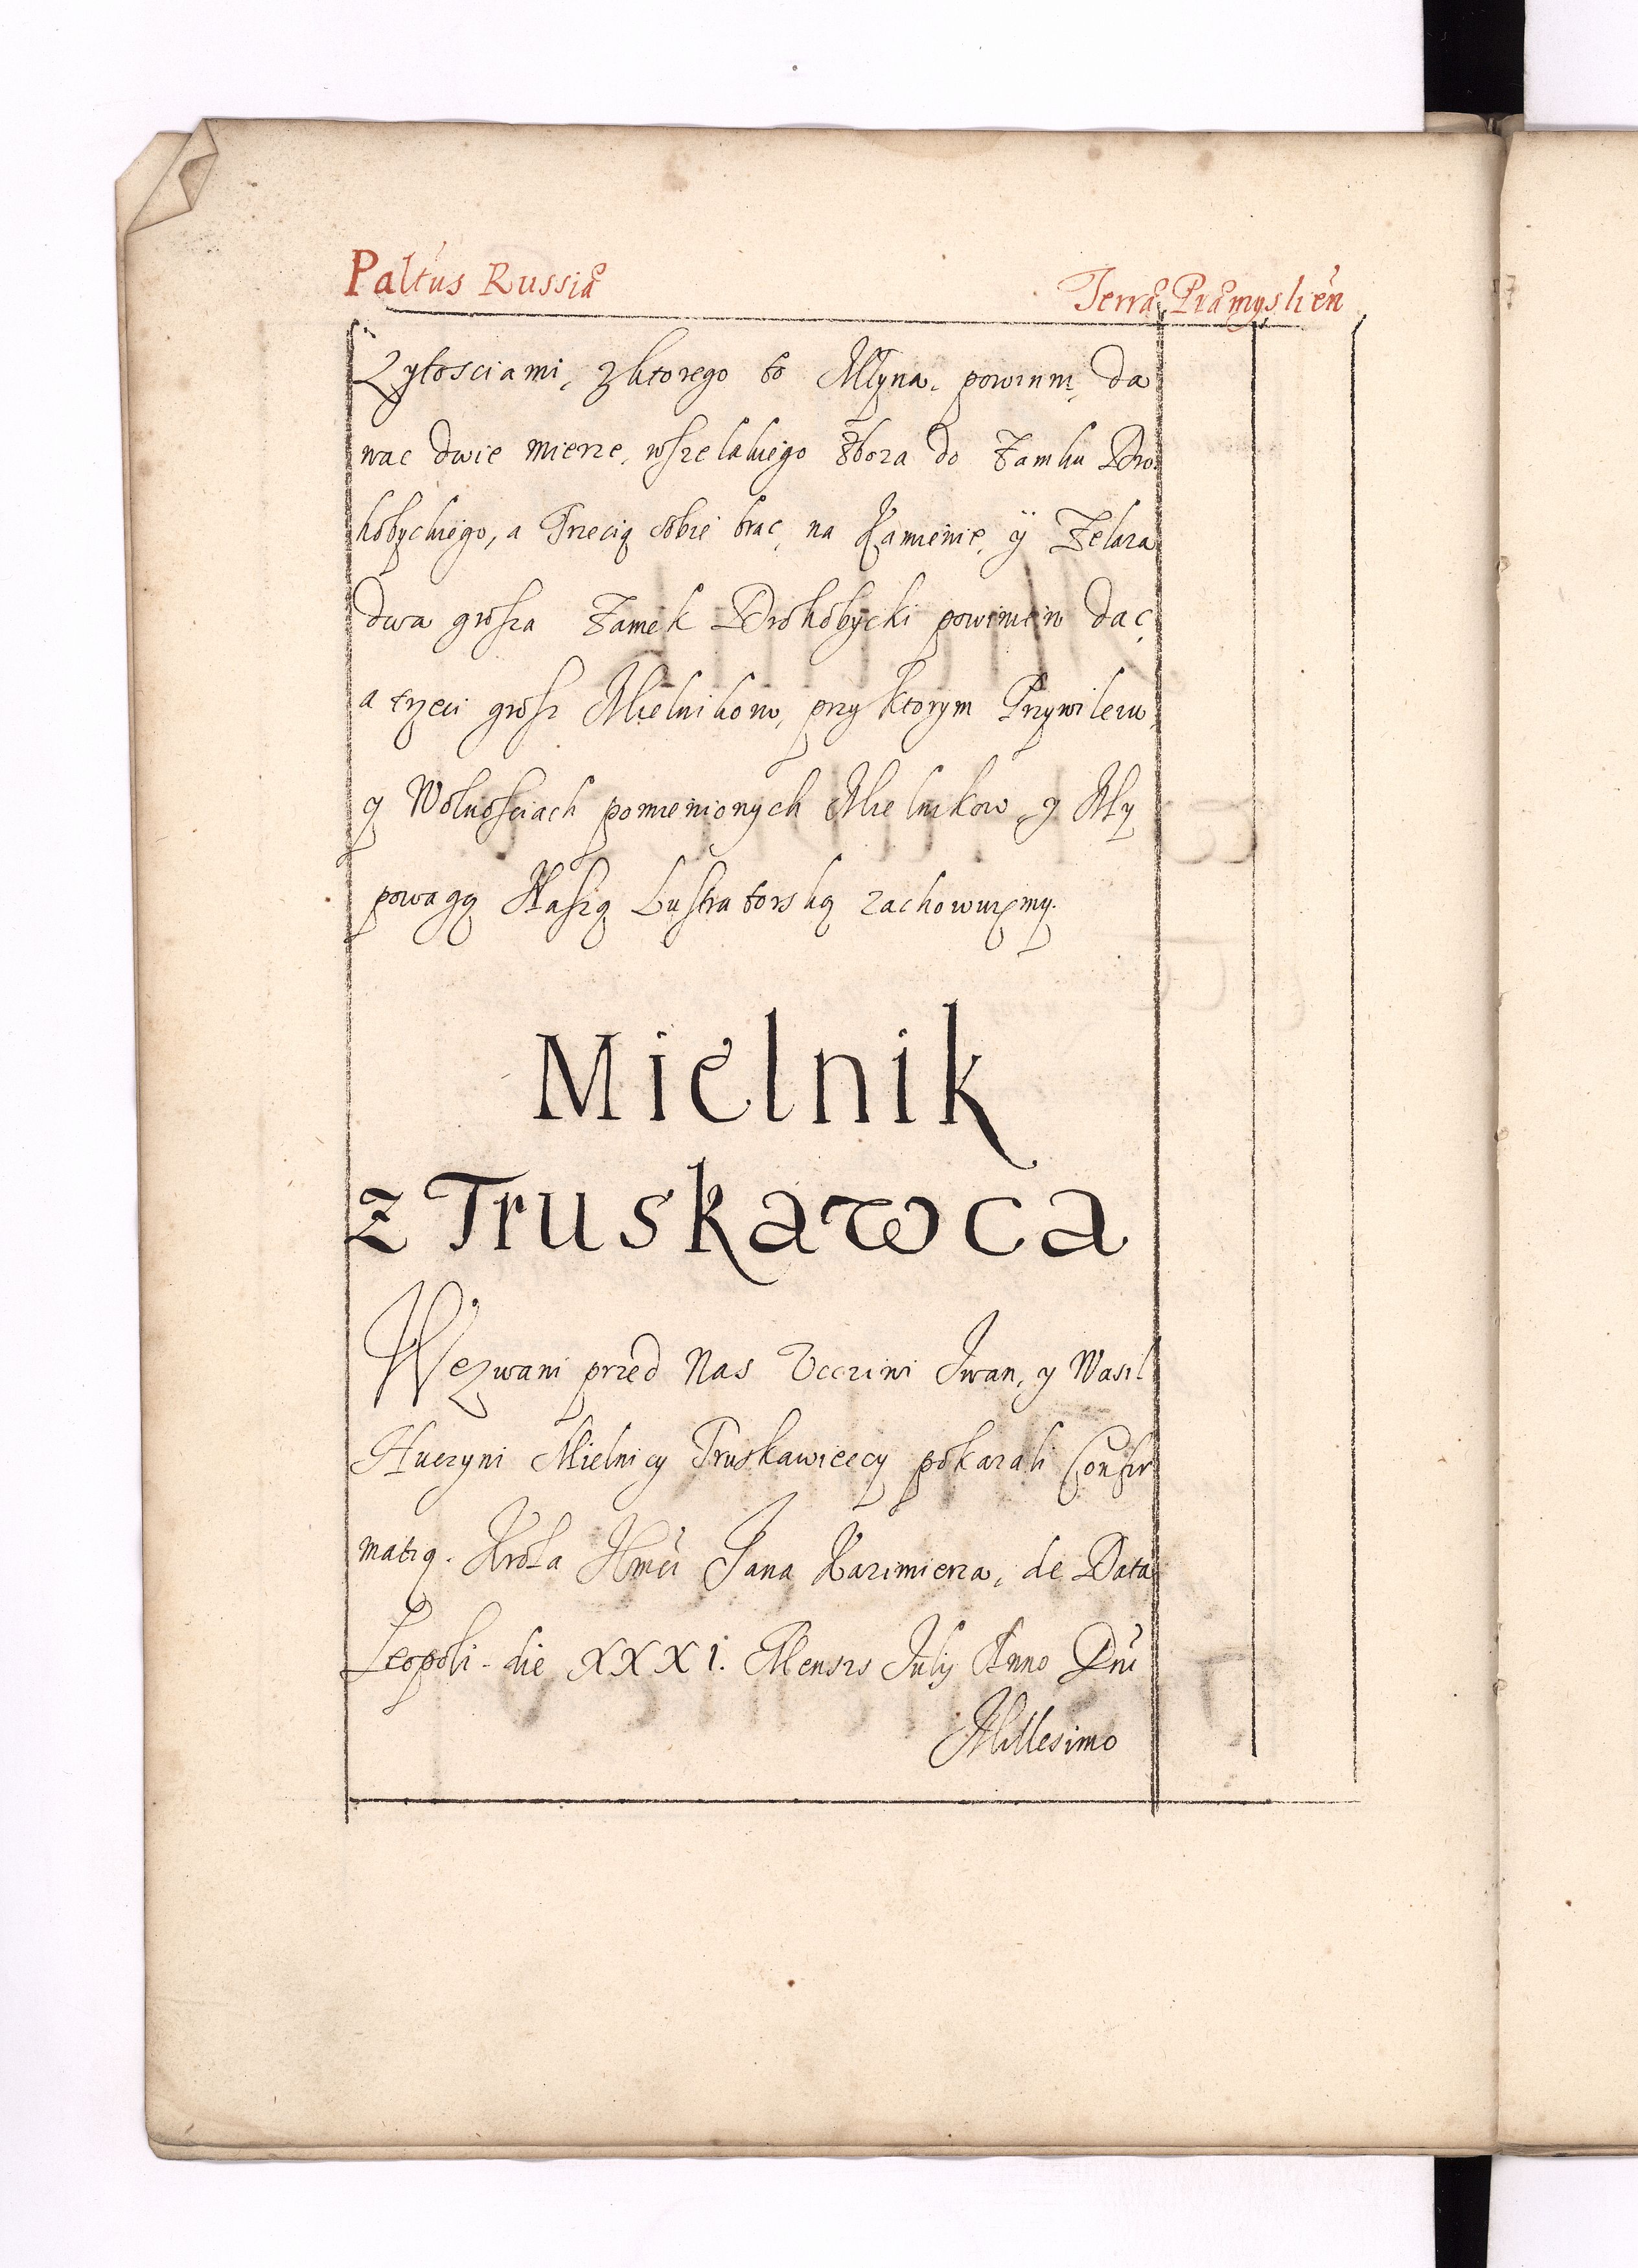 Paltus Russiæ
Terræ Præmyslien
Zytosciami, z ktorego to Młyna, powinni, da
wac dwie mierze, wszelakiego Zboza do Zamku Dro
hobyckiego, a Trzecią sobie brac, na Kamienie, ÿ Zelaza
dwa grosza Zamek Drohobycki powinien dac,
a trzeci grosz Mielnikow, przy ktorym Przywileiu,
y Wolnosciach pomienionych Mielnikow, y My
powagą Naszą Lustratorską zachowuięmy.
Mielnik
z Truskawca
Wezwani przed Nas Uczciwi Iwan, y Wasil
Huczyni Mielnicy Truskawieccy pokazali Confir
matią. Krola Jmći Jana Kazimierza, de Data
Leopoli. die XXXI. Mensis Julij Anno Dni
Millesimo